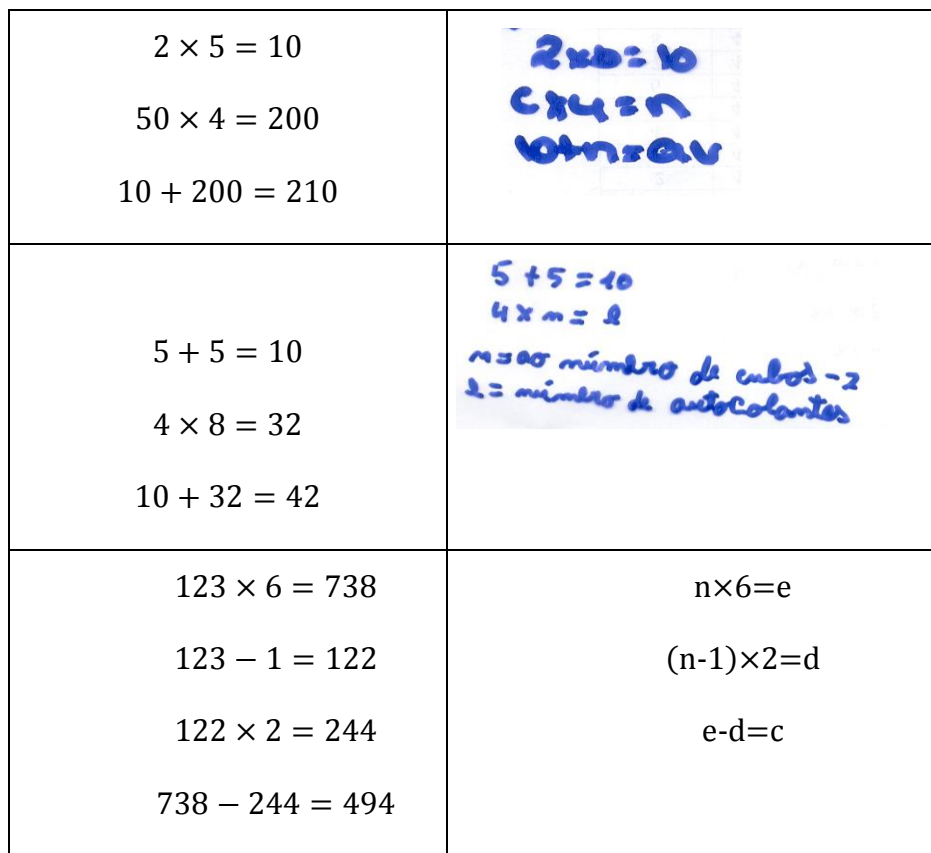 2 × 5 = 10
50 × 4 = 200
10 + 200 = 210
C×4=n
10+n=av
5 + 5 = 10
4 × 8 = 32
10 + 32 = 42
5 + 5 = 10
4 × n = l
n = ao número de cubos - 2
l = número de autocolantes
123 × 6 = 738
123 − 1 = 122
122 × 2 = 244
738 − 244 = 494
n×6=e
(n-1)×2=d
e-d=c